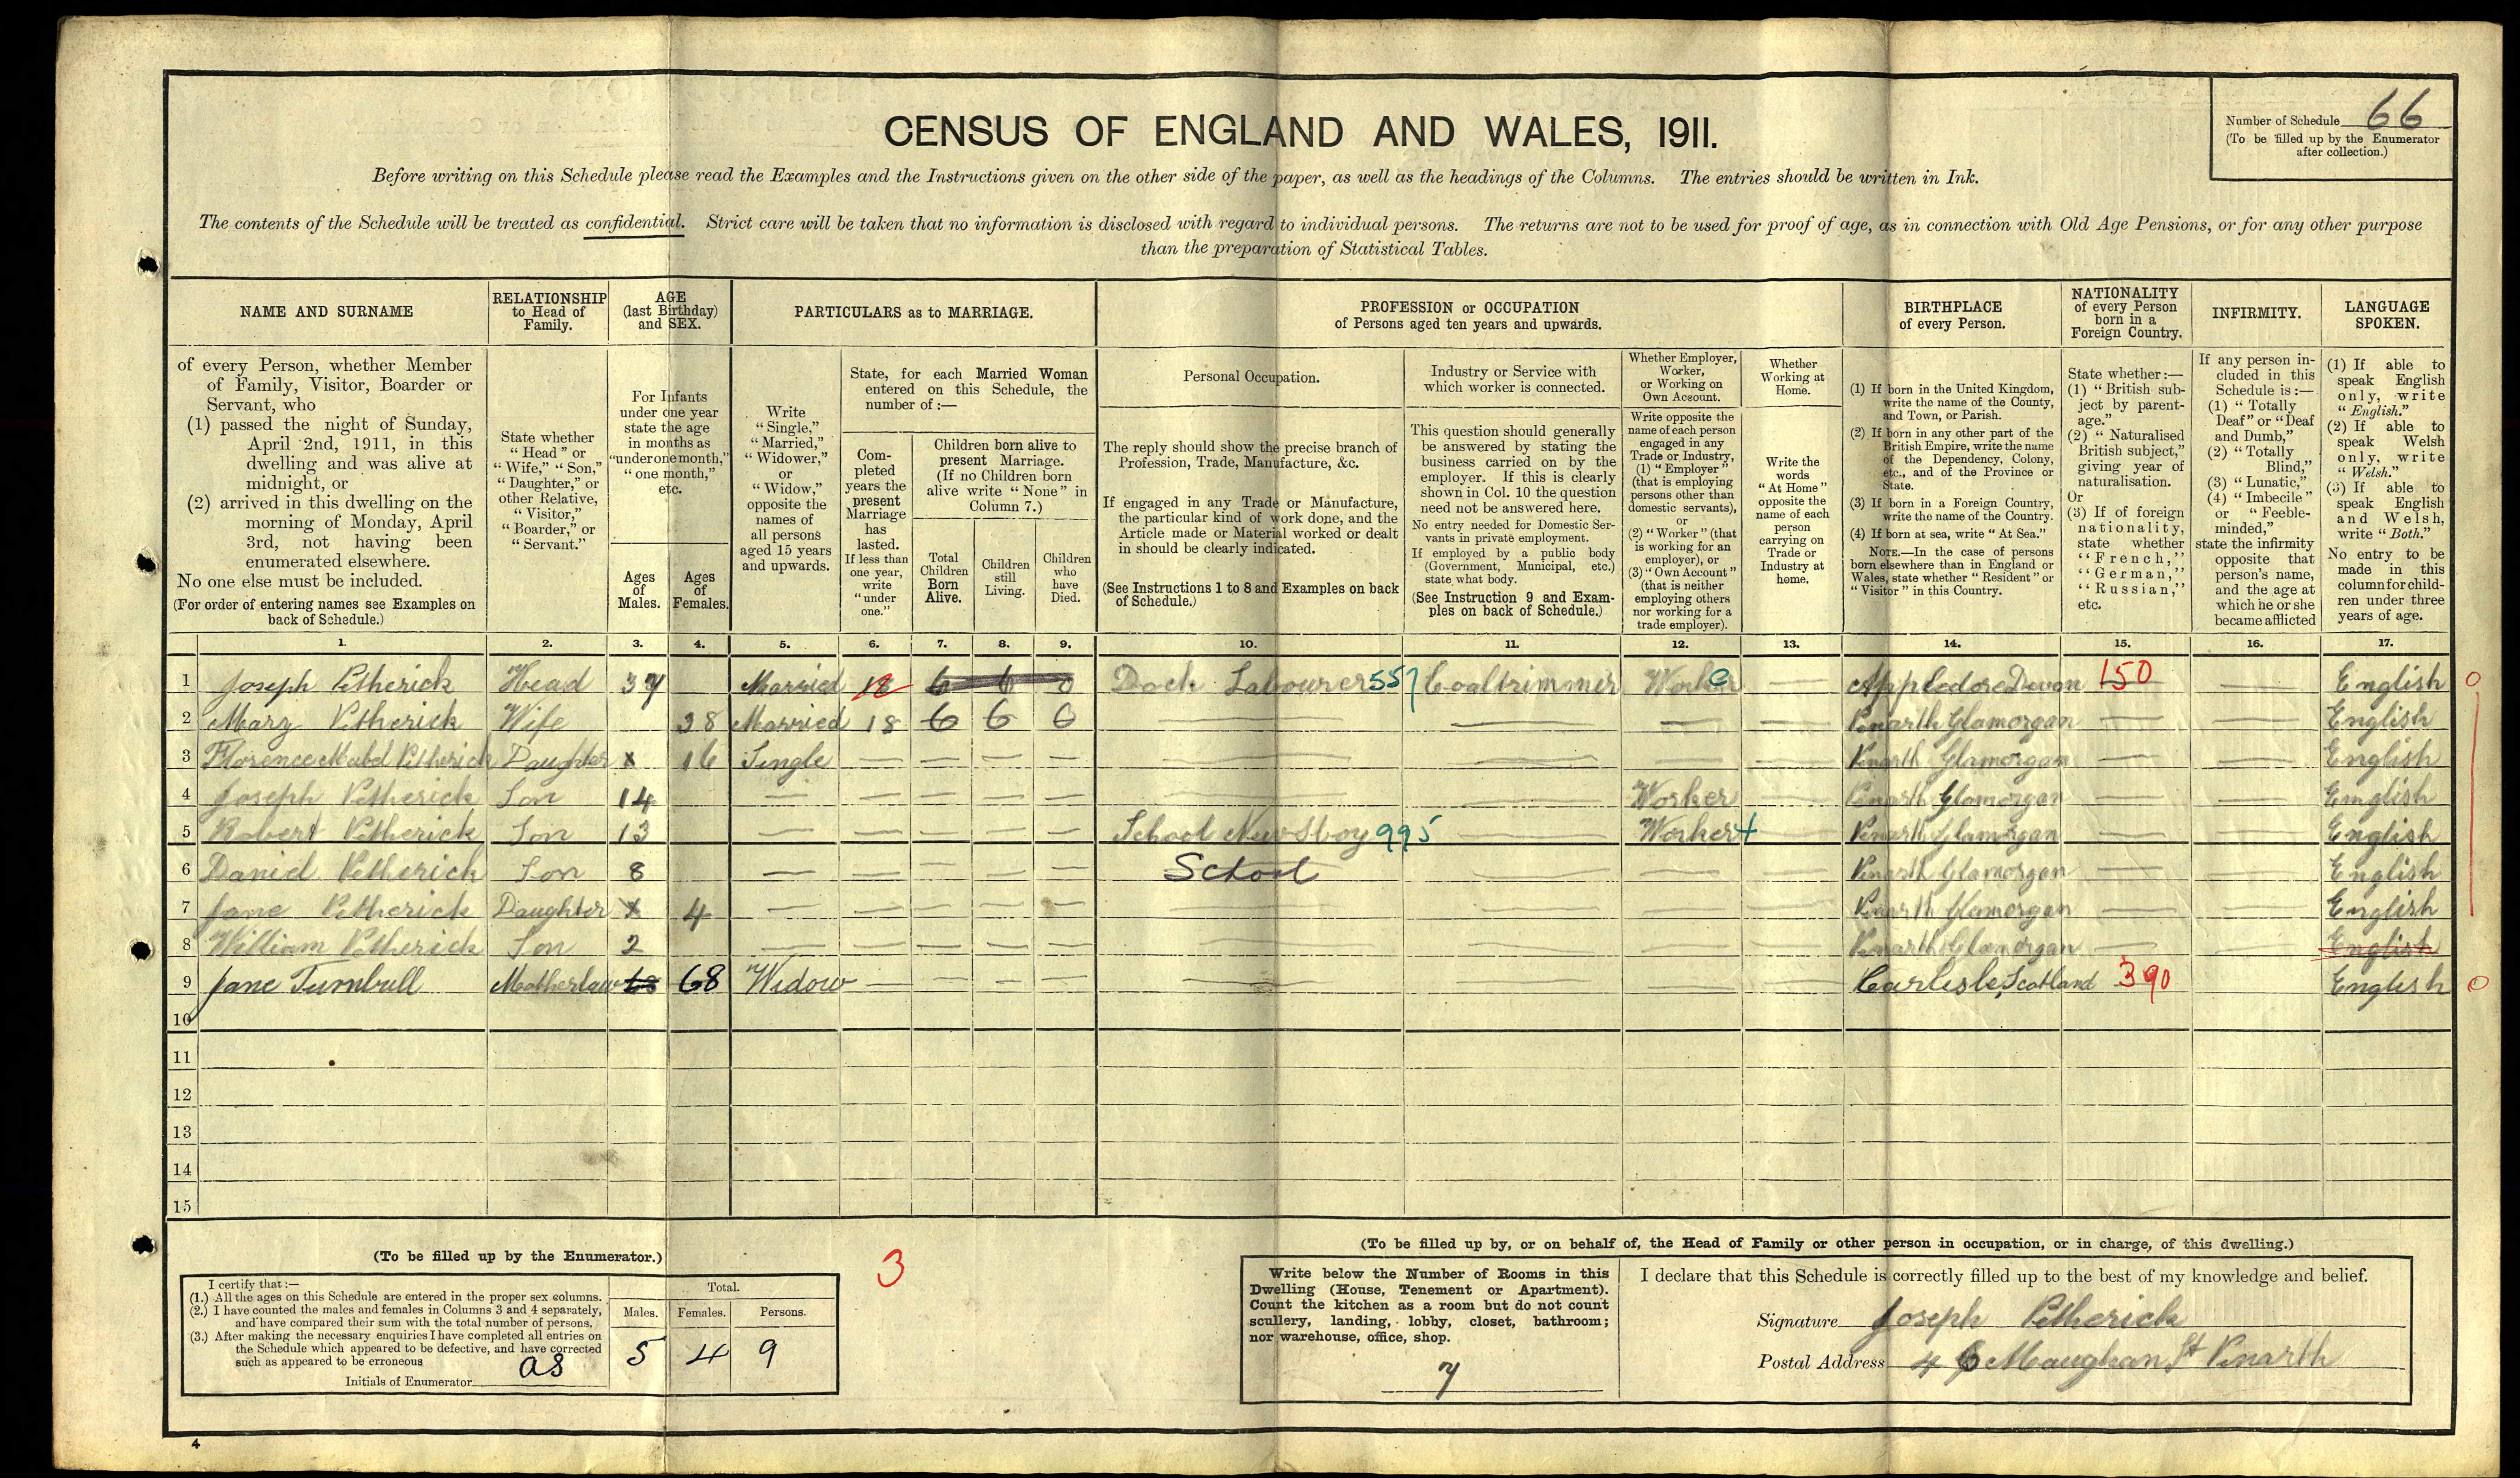 CENSUS OF ENGLAND AND WALES, 1911.
Number of Schedule 66
(To be filled up by the Enumerator
after collection.)
Before writing on this Schedule please read the Examples and the Instructions given on the other side of the paper, as well as the headings of the Columns. The entries should be written in Ink.
The contents of the Schedule will be treated as confidential. Strict care will be taken that no information is disclosed with regard to individual persons. The returns are not to be used for proof of age, as in connection with Old Age Pensions, or for any other purpose
than the preparation of Statistical Tables.
NAME AND SURNAME
of every Person, whether Member
of Family, Visitor, Boarder or
Servant, who
(1) passed the night of Sunday,
April 2nd, 1911, in this
dwelling and was alive at
midnight, or
(2) arrived in this dwelling on the
morning of Monday, April
3rd, not having been
enumerated elsewhere.
No one else must be included.
(For order of entering names see Examples on
back of Schedule.)
RELATIONSHIP
to Head of
Family.
State whether
"Head" or
"Wife," "Son,"
"Daughter," or
other Relative,
"Visitor,"
"Boarder," or
"Servant."
AGE
(last Birthday)
and SEX.
For Infants
under one year
state the age
in months as
"under one month,"
"one month,"
etc.
Ages
of
Males.
Ages
of
Females.
PARTICULARS as to MARRIAGE.
Write
"Single,"
"Married,"
"Widower,"
or
"Widow,"
opposite the
names of
all persons
aged 15 years
and upwards.
State, for each Married Woman
entered on this Schedule, the
number of:—
Com-
pleted
years the
present
Marriage
has
lasted.
If less than
one year,
write
"under
one."
Children born alive to
present Marriage.
(If no Children born
alive write "None" in
Column 7.)
Total
Children
Born
Alive.
Children
still
Living.
Children
who
have
Died.
PROFESSION or OCCUPATION
of Persons aged ten years and upwards.
Personal Occupation.
The reply should show the precise branch of
Profession, Trade, Manufacture, &c.
If engaged in any Trade or Manufacture,
the particular kind of work done, and the
Article made or Material worked or dealt
in should be clearly indicated.
(See Instructions 1 to 8 and Examples on back
of Schedule.)
Industry or Service with
which worker is connected.
This question should generally
be answered by stating the
business carried on by the
employer. If this is clearly
shown in Col. 10 the question
need not be answered here.
No entry needed for Domestic Ser-
vants in private employment.
If employed by a public body
(Government, Municipal, etc.)
state what body.
(See Instruction 9 and Exam-
ples on back of Schedule.)
Whether Employer,
Worker,
or Working on
Own Account.
Write opposite the
name of each person
engaged in any
Trade or Industry,
(1) "Employer"
(that is employing
persons other than
domestic servants),
or
(2) "Worker" (that
is working for an
employer), or
(3) "Own Account"
(that is neither
employing others
nor working for a
trade employer).
Whether
Working at
Home.
Write the
words
"At Home"
opposite the
name of each
person
carrying on
Trade or
Industry at
home.
BIRTHPLACE
of every Person.
(1) If born in the United Kingdom,
write the name of the County,
and Town, or Parish.
(2) If born in any other part of the
British Empire, write the name
of the Dependency, Colony,
etc., and of the Province or
State.
(3) If born in a Foreign Country,
write the name of the Country.
(4) If born at sea, write "At Sea."
NOTE.—In the case of persons
born elsewhere than in England or
Wales, state whether "Resident" or
"Visitor" in this Country.
NATIONALITY
of every Person
born in a
Foreign Country.
State whether:—
(1) "British sub-
ject by parent-
age."
(2) "Naturalised
British subject,"
giving year of
naturalisation.
Or
(3) If of foreign
nationality,
state whether
"French,"
"German,"
"Russian,"
etc.
INFIRMITY.
If any person in-
cluded in this
Schedule is:—
(1) "Totally
Deaf" or "Deaf
and Dumb,"
(2) "Totally
Blind,"
(3) "Lunatic,"
(4) "Imbecile"
or "Feeble-
minded,"
state the infirmity
opposite that
person's name,
and the age at
which he or she
became afflicted
LANGUAGE
SPOKEN.
(1) If able to
speak English
only, write
"English."
(2) If able to
speak Welsh
only, write
"Welsh."
(3) If able to
speak English
and Welsh,
write "Both."
No entry to be
made in this
column for child-
ren under three
years of age.
1. 2. 3. 4. 5. 6. 7. 8. 9. 10. 11. 12. 13. 14. 15. 16. 17.
1 Joseph Petherick Head 37 Married 18 6 6 0 Dock Labourer 557 Coaltrimmer Worker Appledore Devon 150 English
2 Mary Petherick Wife 38 Married 18 6 6 0 Penarth Glamorgan English
3 Florence Mabel Petherick Daughter x 16 Single Penarth Glamorgan English
4 Joseph Petherick Son 14 Worker Penarth Glamorgan English
5 Robert Petherick Son 13 School Newsboy 995 Worker Penarth Glamorgan English
6 Daniel Petherick Son 8 School Penarth Glamorgan English
7 Jane Petherick Daughter x 4 Penarth Glamorgan English
8 William Petherick Son 2 Penarth Glamorgan English
9 Jane Turnbull Motherlaw 68 68 Widow Carlisle, Scotland 390 English
10
11
12
13
14
15
(To be filled up by the Enumerator.)
I certify that:—
(1.) All the ages on this Schedule are entered in the proper sex columns.
(2.) I have counted the males and females in Columns 3 and 4 separately,
and have compared their sum with the total number of persons.
(3.) After making the necessary enquiries I have completed all entries on
the Schedule which appeared to be defective, and have corrected
such as appeared to be erroneous
Initials of Enumerator as
Total.
Males. Females. Persons.
5 4 9
3
(To be filled up by, or on behalf of, the Head of Family or other person in occupation, or in charge, of this dwelling.)
Write below the Number of Rooms in this
Dwelling (House, Tenement or Apartment).
Count the kitchen as a room but do not count
scullery, landing, lobby, closet, bathroom;
nor warehouse, office, shop.
7
I declare that this Schedule is correctly filled up to the best of my knowledge and belief.
Signature Joseph Petherick
Postal Address 46 Maughan St Penarth
4